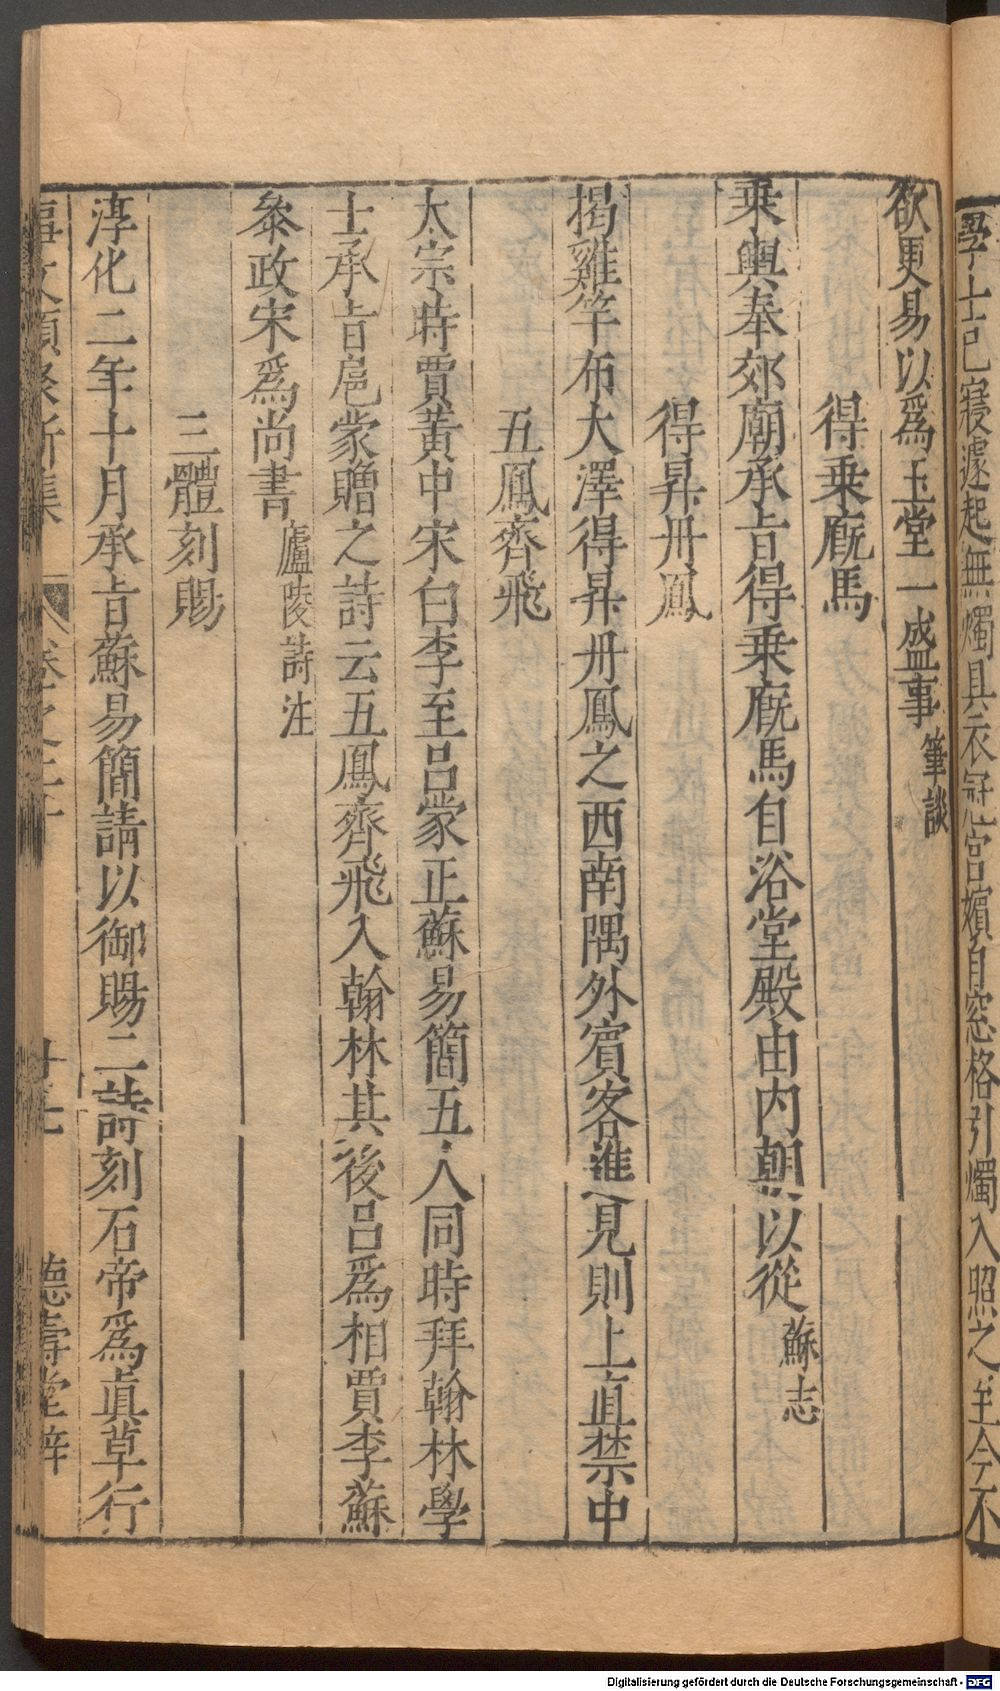 學士已寢遽起無燭具衣冠宮嬪自窓格引燭入照之至今不
欲更易以爲玉堂一盛事筆談
得乗廐馬
乗輿奉郊廟承旨得乗廐馬自浴堂殿由内朝以從蘇志
得昇丹鳳
揭雞竿布大澤得昇丹鳳之西南隅外賓客進見則上直禁中
五鳳齊飛
太宗時賈黃中宋白李至呂蒙正蘇易簡五人同時拜翰林學
士承旨扈蒙贈之詩云五鳳齊飛入翰林其後呂爲相賈李蘇
叅政宋爲尚書廬陵詩注
三體刻賜
淳化二年十月承旨蘇易簡請以御賜二詩刻石帝爲眞草行
事文類聚新集 卷之二十 廿七 德壽堂梓
Digitalisierung gefördert durch die Deutsche Forschungsgemeinschaft - DFG